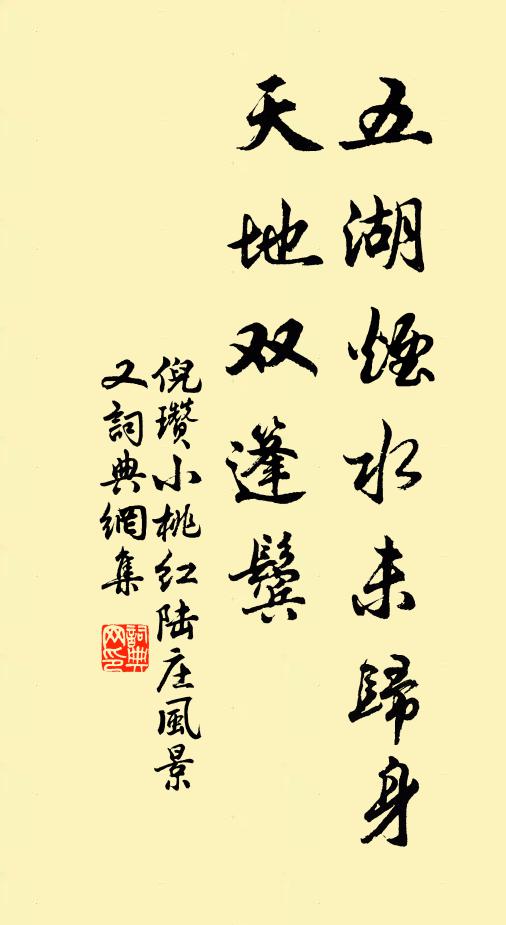 五湖煙水未歸身
天地双蓬鬓
倪瓒小桃红陆庄風景
又詞典網集
詞典
网印